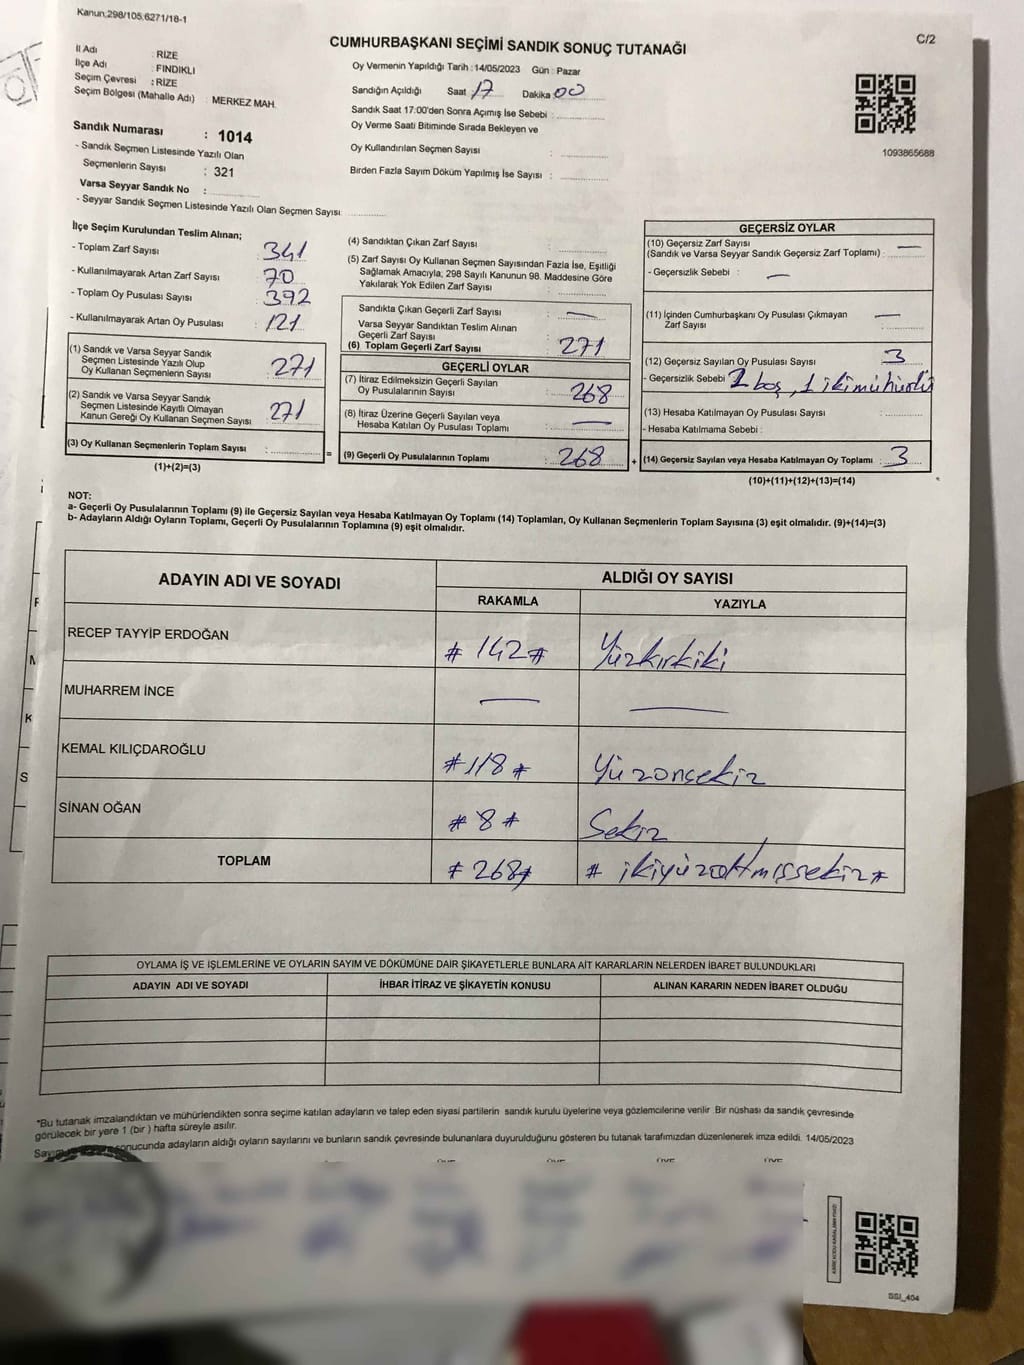 Kanun:298/105,6271/18-1
C/2
CUMHURBAŞKANI SEÇİMİ SANDIK SONUÇ TUTANAĞI
İl Adı : RİZE
İlçe Adı : FINDIKLI
Seçim Çevresi : RİZE
Seçim Bölgesi (Mahalle Adı) : MERKEZ MAH.
Sandık Numarası : 1014
- Sandık Seçmen Listesinde Yazılı Olan
Seçmenlerin Sayısı : 321
Varsa Seyyar Sandık No :
- Seyyar Sandık Seçmen Listesinde Yazılı Olan Seçmen Sayısı
Oy Vermenin Yapıldığı Tarih : 14/05/2023 Gün : Pazar
Sandığın Açıldığı Saat 17 Dakika 00
Sandık Saat 17:00'den Sonra Açımış İse Sebebi :
Oy Verme Saati Bitiminde Sırada Bekleyen ve
Oy Kullandırılan Seçmen Sayısı :
Birden Fazla Sayım Döküm Yapılmış İse Sayısı :
1093865688
İlçe Seçim Kurulundan Teslim Alınan;
- Toplam Zarf Sayısı : 341
- Kullanılmayarak Artan Zarf Sayısı : 70
- Toplam Oy Pusulası Sayısı : 392
- Kullanılmayarak Artan Oy Pusulası : 121
(1) Sandık ve Varsa Seyyar Sandık
Seçmen Listesinde Yazılı Olup
Oy Kullanan Seçmenlerin Sayısı : 271
(2) Sandık ve Varsa Seyyar Sandık
Seçmen Listesinde Kayıtlı Olmayan
Kanun Gereği Oy Kullanan Seçmen Sayısı : 271
(3) Oy Kullanan Seçmenlerin Toplam Sayısı : =
(1)+(2)=(3)
(4) Sandıktan Çıkan Zarf Sayısı :
(5) Zarf Sayısı Oy Kullanan Seçmen Sayısından Fazla İse, Eşitliği
Sağlamak Amacıyla, 298 Sayılı Kanunun 98. Maddesine Göre
Yakılarak Yok Edilen Zarf Sayısı :
Sandıkta Çıkan Geçerli Zarf Sayısı : —
Varsa Seyyar Sandıktan Teslim Alınan
Geçerli Zarf Sayısı :
(6) Toplam Geçerli Zarf Sayısı : 271
GEÇERLİ OYLAR
(7) İtiraz Edilmeksizin Geçerli Sayılan
Oy Pusulalarının Sayısı : 268
(8) İtiraz Üzerine Geçerli Sayılan veya
Hesaba Katılan Oy Pusulası Toplamı : —
(9) Geçerli Oy Pusulalarının Toplamı : 268 +
GEÇERSİZ OYLAR
(10) Geçersiz Zarf Sayısı —
(Sandık ve Varsa Seyyar Sandık Geçersiz Zarf Toplamı) :
- Geçersizlik Sebebi : —
(11) İçinden Cumhurbaşkanı Oy Pusulası Çıkmayan
Zarf Sayısı : —
(12) Geçersiz Sayılan Oy Pusulası Sayısı : 3
- Geçersizlik Sebebi : 2 boş, 1 iki mühürlü
(13) Hesaba Katılmayan Oy Pusulası Sayısı :
- Hesaba Katılmama Sebebi :
(14) Geçersiz Sayılan veya Hesaba Katılmayan Oy Toplamı : 3
(10)+(11)+(12)+(13)=(14)
NOT:
a- Geçerli Oy Pusulalarının Toplamı (9) ile Geçersiz Sayılan veya Hesaba Katılmayan Oy Toplamı (14) Toplamları, Oy Kullanan Seçmenlerin Toplam Sayısına (3) eşit olmalıdır. (9)+(14)=(3)
b- Adayların Aldığı Oyların Toplamı, Geçerli Oy Pusulalarının Toplamına (9) eşit olmalıdır.
ADAYIN ADI VE SOYADI ALDIĞI OY SAYISI
RAKAMLA YAZIYLA
RECEP TAYYİP ERDOĞAN # 142 # Yüzkırkiki
MUHARREM İNCE — —
KEMAL KILIÇDAROĞLU # 118 # Yüzonsekiz
SİNAN OĞAN # 8 # Sekiz
TOPLAM # 268 # # ikiyüzaltmışsekiz #
OYLAMA İŞ VE İŞLEMLERİNE VE OYLARIN SAYIM VE DÖKÜMÜNE DAİR ŞİKAYETLERLE BUNLARA AİT KARARLARIN NELERDEN İBARET BULUNDUKLARI
ADAYIN ADI VE SOYADI İHBAR İTİRAZ VE ŞİKAYETİN KONUSU ALINAN KARARIN NEDEN İBARET OLDUĞU
*Bu tutanak imzalandıktan ve mühürlendikten sonra seçime katılan adayların ve talep eden siyasi partilerin sandık kurulu üyelerine veya gözlemcilerine verilir. Bir nüshası da sandık çevresinde
görülecek bir yere 1 (bir) hafta süreyle asılır.
sonucunda adayların aldığı oyların sayılarını ve bunların sandık çevresinde bulunanlara duyurulduğunu gösteren bu tutanak tarafımızdan düzenlenerek imza edildi. 14/05/2023
SSI_404